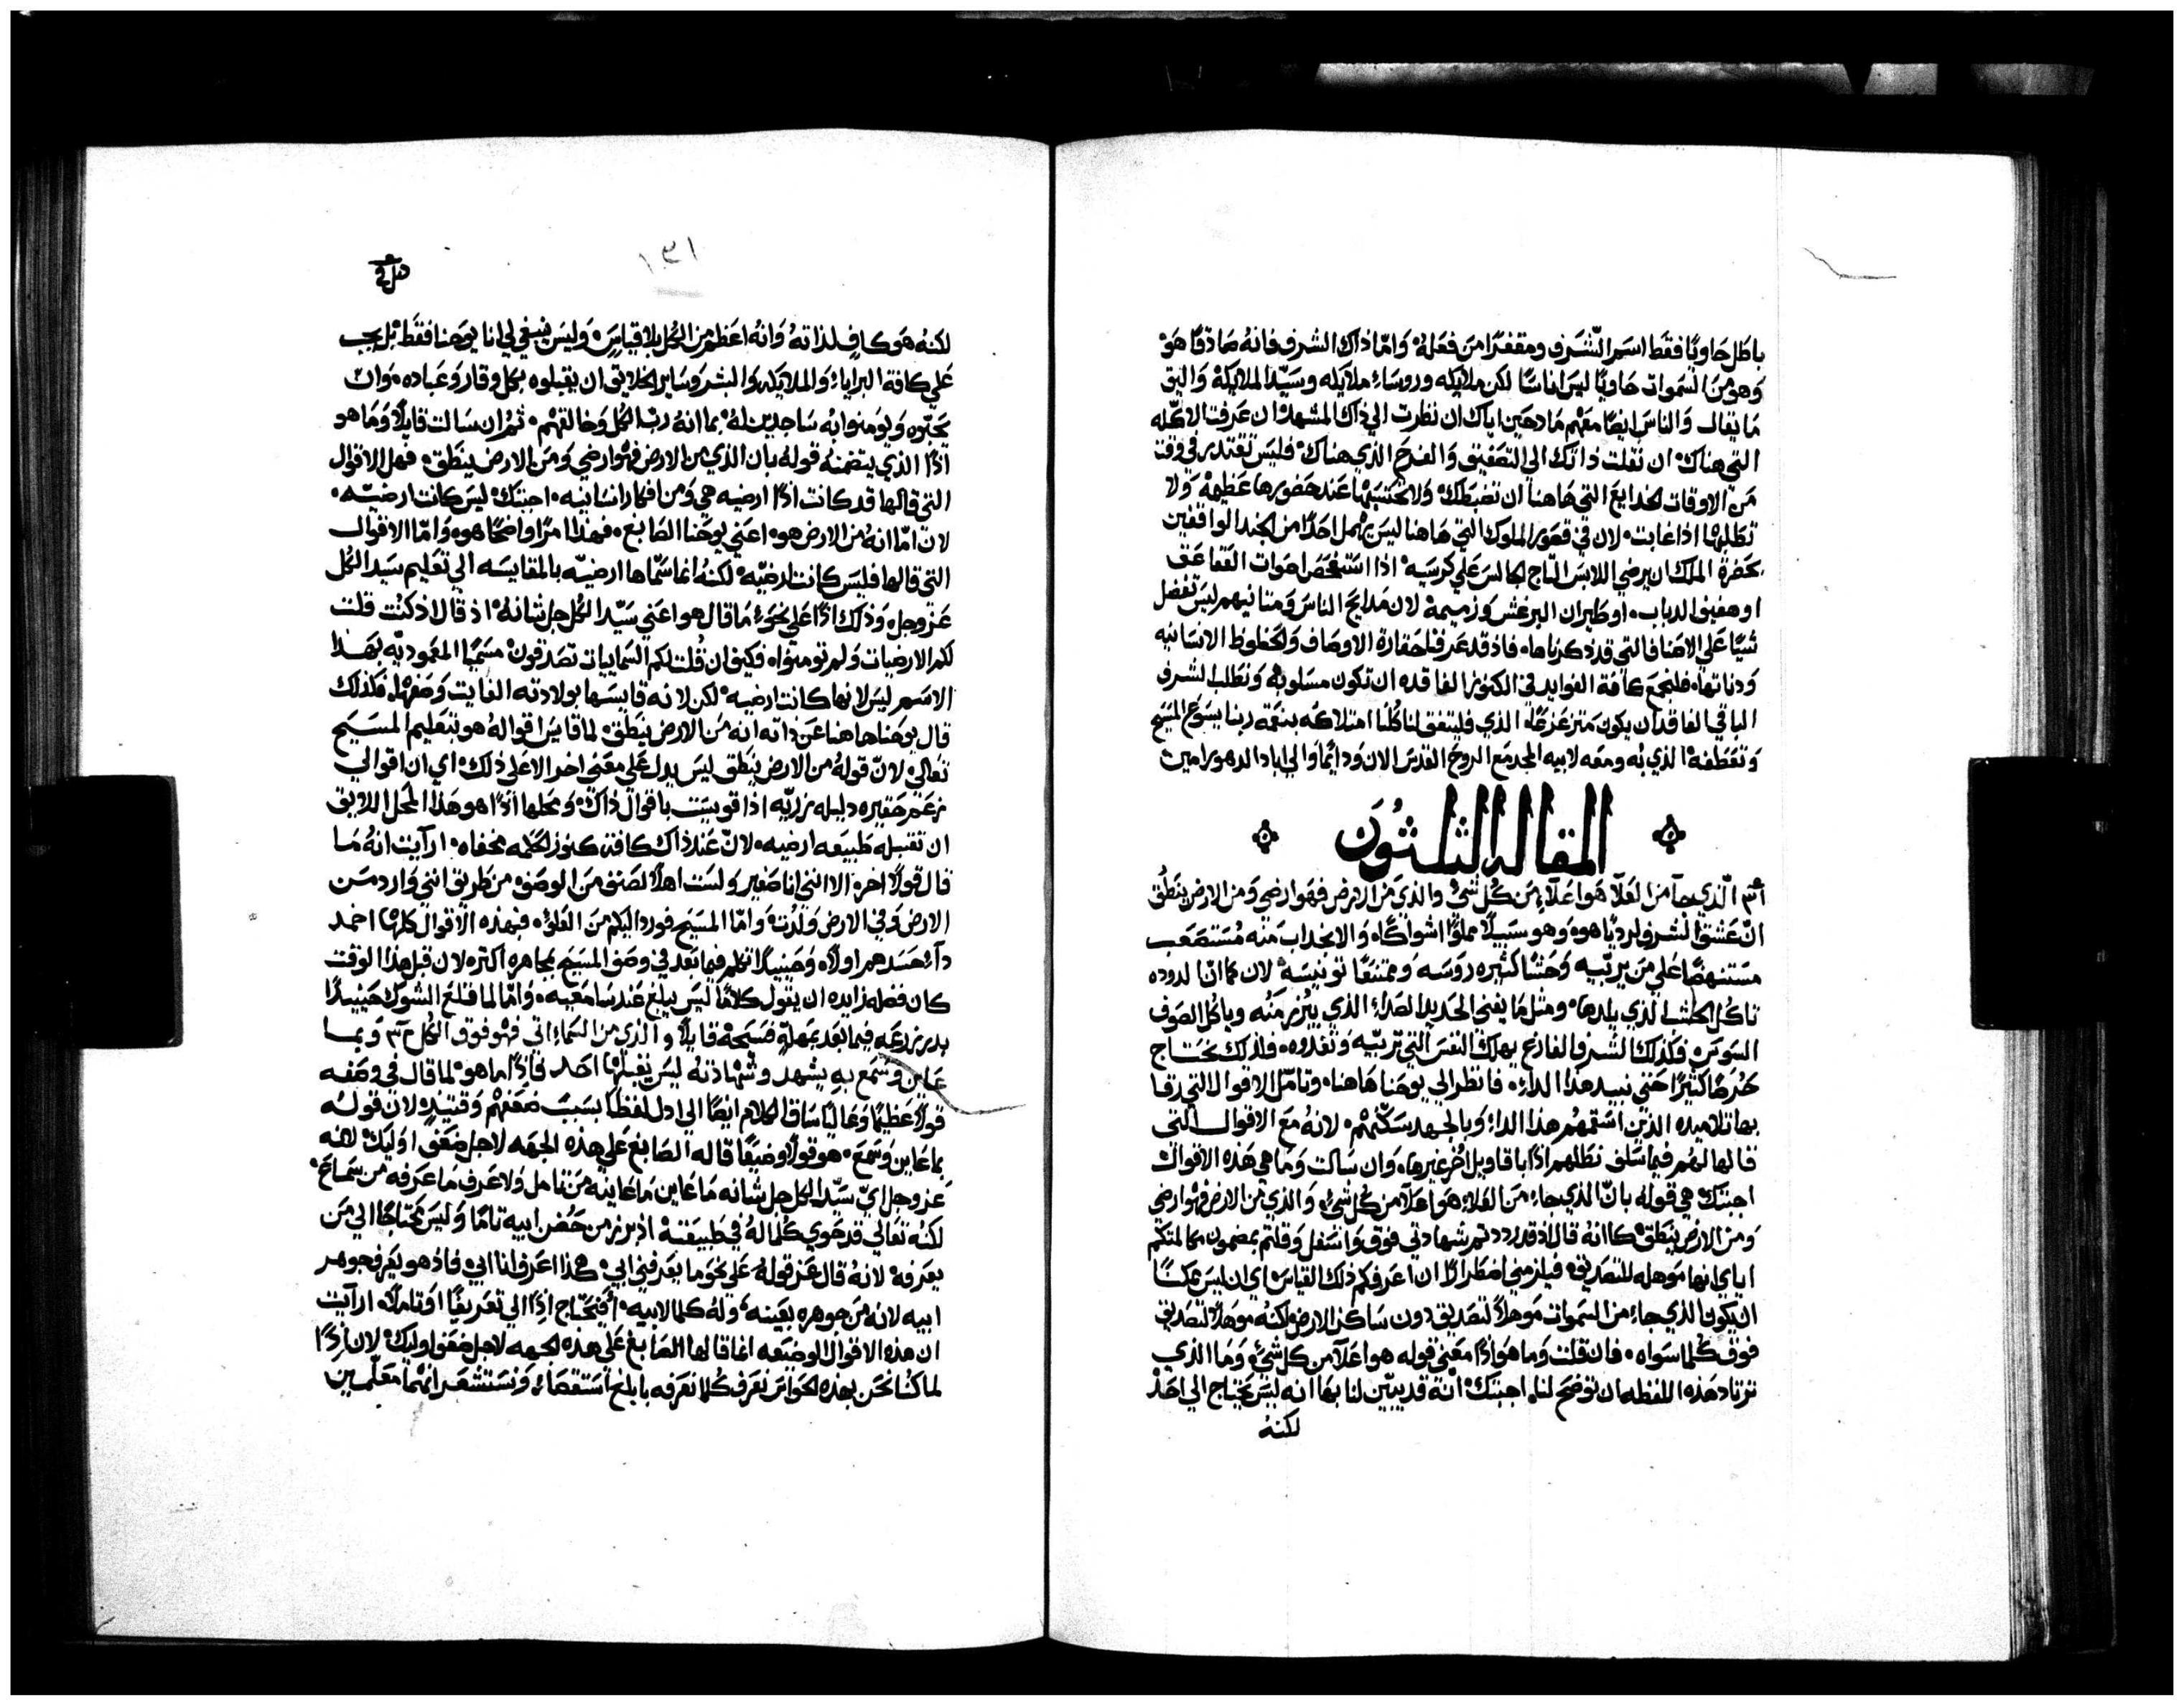 باطل حاويًا فقط اسم الشرف ومقفرًا من فعله وامّا ذاك الشرف فانه صادقًا هو
وهو من السموات حاويًا ليس اناسًا لكن ملايكه وروساء ملايكه وسيّد الملايكة واليق
ما يقال والناس ايضًا معهم مادحين اياك ان نظرت الي ذاك المشهد ان عرفت الاكله
التي هناك ان نقلت ذاتك الي التصفيق والفرح الذي هناك فليس تقتدر في وقت
من الاوقات الخدايع التي هاهنا ان تضبطك ولا تحتسبها عند حضورها عظيمة ولا
تطلبها اذا غابت لان في قصور الملوك التي هاهنا ليس يهمل احدًا من الجند الواقفين
بحضرة الملك ان يرضي اللابس التاج الجالس علي كرسيه اذا استفحص اصوات القعاعق
او هفيف الدباب او طيران البرغش وزميمه لان مدايح الناس ومثانيهم ليس تفضل
شيًا علي الاصناف التي قد ذكرناها فاذ قد عرفنا حقارة الاوصاف والحظوظ الانسانيه
ودناتها فلنجمع كافة الفوايد في الكنوز الفاقده ان تكون مسلوبه ونطلب الشرف
الباقي الفاقد ان يكون متزعزعًا الذي فليتفق لنا كلنا امتلاكه بنعمة ربنا يسوع المسيح
وتعطفه الذي به ومعه لابيه المجد مع الروح القدس الان ودايمًا والي اباد الدهور امين
المقاله الثلثون
الّذي جآ من العلآ هو اعلآ من كل شي والذي من الارض فهو ارضي ومن الارض ينطق
انّ عشق الشرف لرديًا هو وهو سبيلًا مملوًا اشواكًا والانجداب منه مستصعب
مستنهضًا علي من يربّيه وحشًا كثيره روسه وممتنعًا تونيسه لان كما انّا الدوده
تاكل الخشب الذي يلدها ومثل ما يفني الحديد الصداء الذي يبرز منه وياكل الصوف
السوس فكذلك الشرف الفارغ يهلك النفس التي تربّيه وتغدوه فلذلك نحتاج
حذرًا كثيرًا حتي نبيد هذا الداء فانظر الي يوحنا هاهنا وتامّل الاقوال التي رقا
بها تلاميده الذين اسقمهم هذا الداء وبالجهد سكّنهم لانه مع الاقوال التي
قالها لهم فيما سلف نظلهم اذًا باقاويل اخر غيرها وان سالت وما هي هذه الاقوال
اجبتك هي قوله بانّ الذي جاء من العلاء هو اعلآ من كل شي والذي من الارض فهو ارضي
ومن الارض ينطق كاانه قال اذ قد رددتم شهادتي فوق واسفل وقلتم بمضمون مكالمتكم
اياي انها موهله للتصديق فيلزمني اضطرارًا ان اعرفكم ذلك القياس اي ان ليس ممكنًا
ان يكون الذي جاء من السموات موهلًا لتصديق دون ساكن الارض لكنه موهلًا لتصديق
فوق كلما سواه فان قلت وما هو اذًا معني قوله هو اعلآ من كل شي وما الذي
ترتاد هذه اللفظه ان توضح لنا اجبتك انه قد يبيّن لنا بها انه ليس يحتاج الي احد
لكنه
١٣١
لكنه هو كافٍ لذاته وانه اعظم من الكل بلا قياس وليس ينبغي لي انا يوحنا فقط بل يجب
علي كافة البرايا والملايكه والبشر وساير الخلايق ان يقبلوه بكل وقار وعباده وان
يحبّوه ويومنوا به ساجدين له بما انه ربّ الكل وخالقهم ثم ان سالت قايلًا وما هو
اذًا الذي يتضمنه قوله بان الذي من الارض فهو ارضي ومن الارض ينطق فهل الاقوال
التي قالها قد كانت اذًا ارضيه هي ومن افكار انسانيه اجبتك ليس كانت ارضيّه
لان امّا انه من الارض هو اعني يوحنا الصابغ فهذا امرًا واضحًا هو وامّا الاقوال
التي قالها فليس كانت ارضيّه لكنه انما سمّاها ارضيّه بالمقايسه الي تعليم سيد الكل
عز وجل وذلك اذًا علي نحو ما قال هو اعني سيّد الكل جل شانه اذ قال اذ كنت قلت
لكم الارضيات ولم تومنوا فكيف ان قلت لكم السماييات تصدقون مسميًا المعموديّه بهذا
الاسم ليس لانها كانت ارضيه لكن لانه قايسها بولادته الفايت وصفها فكذلك
قال يوحنا هاهنا عن ذاته انه من الارض ينطق لما قايس اقواله هو بتعليم المسيح
تعالي لانّ قوله من الارض ينطق ليس يدل علي معني اخر الا علي ذلك اي ان اقوالي
حقيره دليله مزريّه اذا قويست باقوال ذاك ومحلها اذًا هو هذا المحل اللايق
ان تقبله طبيعه ارضيه لانّ عند ذاك كافة كنوز الحكمه مخفاه ارآيت انه ما
قال قولًا اخر الا انني انا صغير ولست اهلًا لصنف من الوصف من طريق انني وارد من
الارض وفي الارض ولدت وامّا المسيح فورد اليكم من العلوّ فبهذه الاقوال كلها اخمد
دآ حسدهم اولًا وحينيدًا تكلم فيما بعد في وصف المسيح بمجاهره اكثر لان قبل هذا الوقت
كان فضله زايده ان يقول كلامًا ليس يبلغ عند سامعيه وامّا لما قلع الشوك حينيدًا
بدر زرعه فيما بعد بمهلةٍ فسيحه قايلًا والذي من السماء اتي فهو فوق الكل وبما
عاين وسمع به يشهد وشهادته ليس يقبلها احد فاذًا ما هو لما قال في وصفه
قولًا عظيمًا وعاليًا ساق الكلام ايضًا الي ادل لفظًا بسبب ضعفهم وقتيذٍ لان قوله
بما عاين وسمع هو قولًا وضيعًا قاله الصابغ علي هذه الجهه لاجل ضعف اوليك لانه
عز وجل ايّ سيّد الكل جل شانه ما عاين ما عاينه من تامل ولا عرف ما عرفه من سماع
لكنه تعالي قد حوي كلما له في طبيعته اذ برز من حضن ابيه تامًا وليس محتاجًا الي من
يعرفه لانه قال عز قوله علي نحو ما يعرفني ابي هكذا اعرف انا ابي فاذ هو يعرف جوهر
ابيه لانه من جوهره بعينه وله كلما لابيه أفتحتاج اذًا الي تعريفًا او تاملًا ارآيت
ان هذه الاقوال الوضيعه انما قالها الصابغ علي هذه الجهه لاجل ضعف اوليك لان اذًا
لما كنا نحن بهذه الحواس نعرف كلما نعرفه بابلغ استقصاء ونستشعر انهما معلّمين